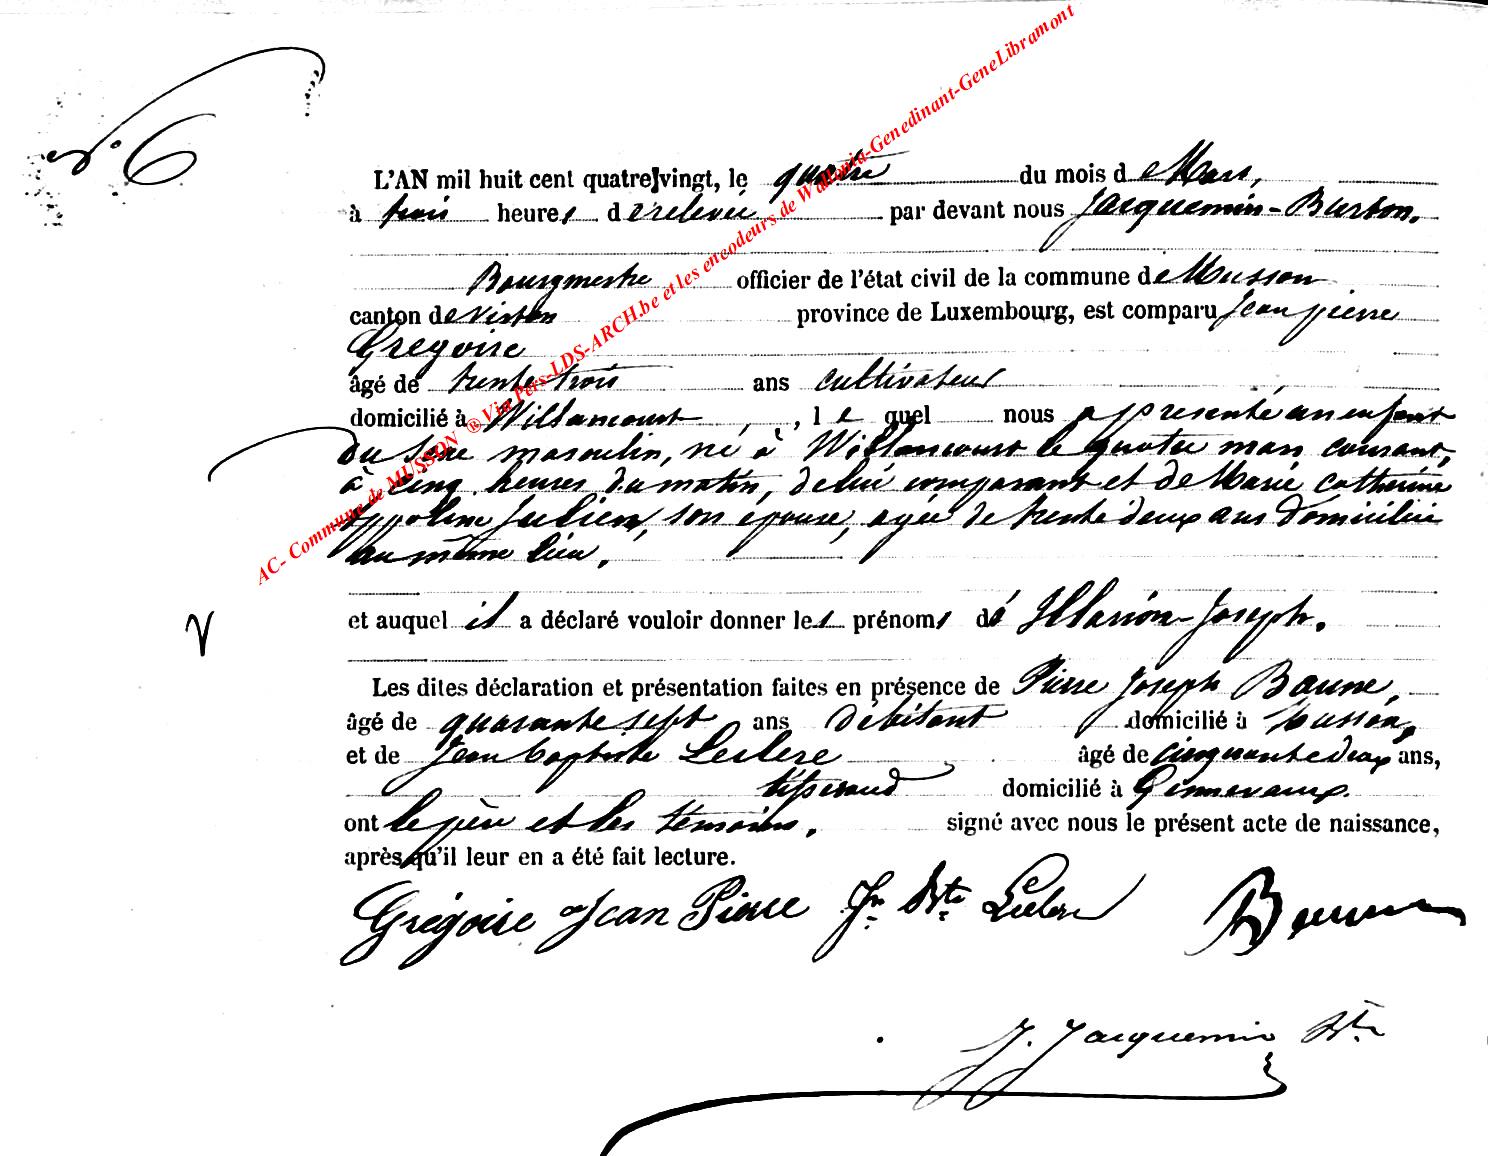 N° 6
L'AN mil huit cent quatre-vingt, le quatre du mois de Mars,
à trois heures de relevée par devant nous Jacquemin-Burton.
Bourgmestre officier de l'état civil de la commune de Musson
canton de Virton province de Luxembourg, est comparu Jean pierre
Grégoire
âgé de trente trois ans cultivateur
domicilié à Willancourt, lequel nous a présenté un enfant
du sexe masculin, né à Willancourt le quatre mars courant,
à cinq heures du matin, de lui comparant et de Marie Catherine
Appoline Julien, son épouse, agée de trente deux ans domiciliée
au même lieu.
et auquel il a déclaré vouloir donner les prénoms de Illarion-Joseph.
Les dites déclaration et présentation faites en présence de Pierre Joseph Baune,
âgé de quarante sept ans débitant domicilié à Musson,
et de Jean Baptiste Leclere âgé de cinquante deux ans,
tisserand domicilié à Gennevaux.
ont le père et les témoins, signé avec nous le présent acte de naissance,
après qu'il leur en a été fait lecture.
Grégoire Jean Pierre Jn Bte Leclere
J. Jacquemin
AC- Commune de MUSSON ® Via Pers-LDS-ARCH.be et les encodeurs de Wallonia-Genedinant-GeneLibramont